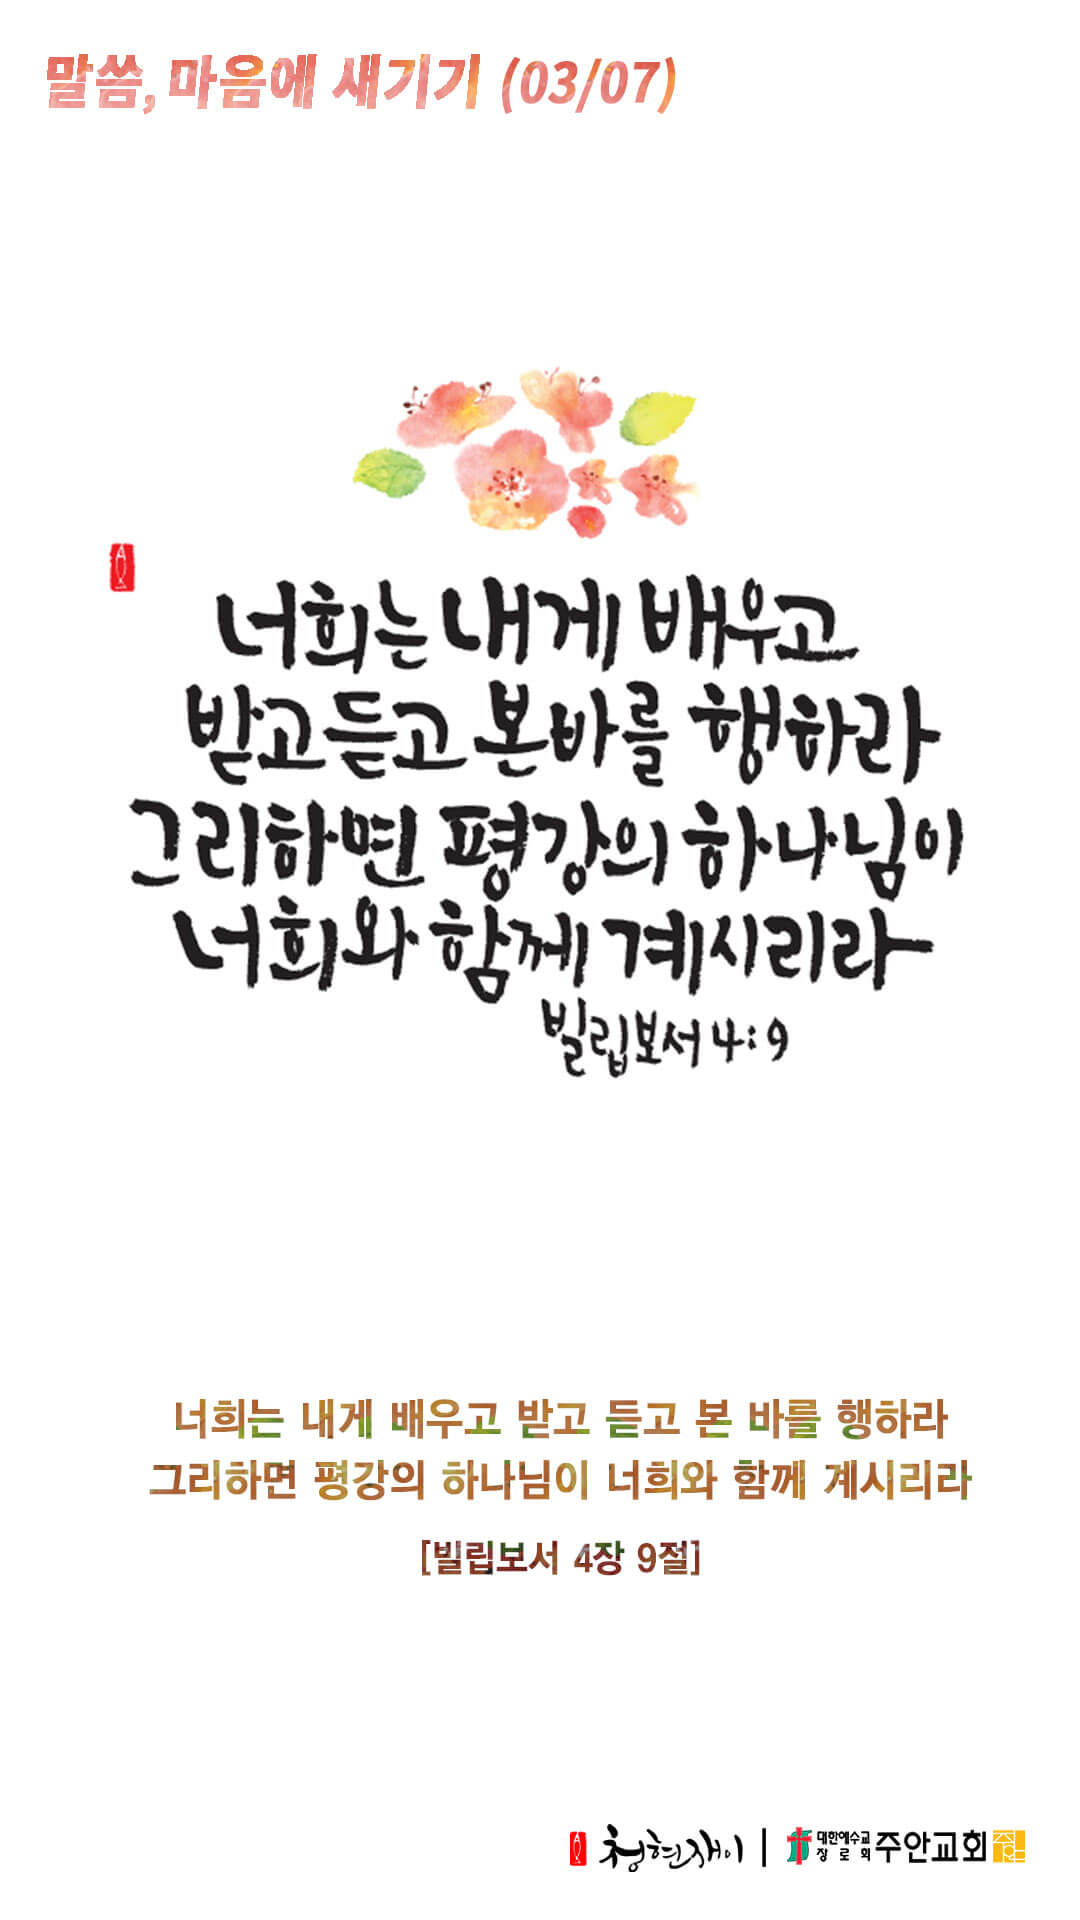 말씀, 마음에 새기기 (03/07)
너희는 내게 배우고
받고 듣고 본 바를 행하라
그리하면 평강의 하나님이
너희와 함께 계시리라
빌립보서 4:9
너희는 내게 배우고 받고 듣고 본 바를 행하라
그리하면 평강의 하나님이 너희와 함께 계시리라
[빌립보서 4장 9절]
청현재이 | 대한예수교장로회 주안교회